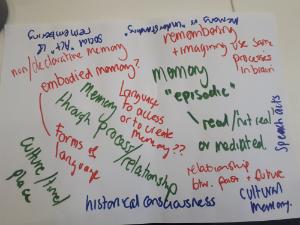 Memory vs "understanding"
social "Act" is
remembering
non/declarative memory
embodied memory?
remembering
+ imagining use same
processes
in brain
Memory
"episodic"
Memory
through process/relationship
Language
to access
or to create
memory??
real/not real
or mediated.
Speech acts
Forms of
language
Culture/time/
place
relationship
btw. past + future
Cultural
memory.
historical consciousness